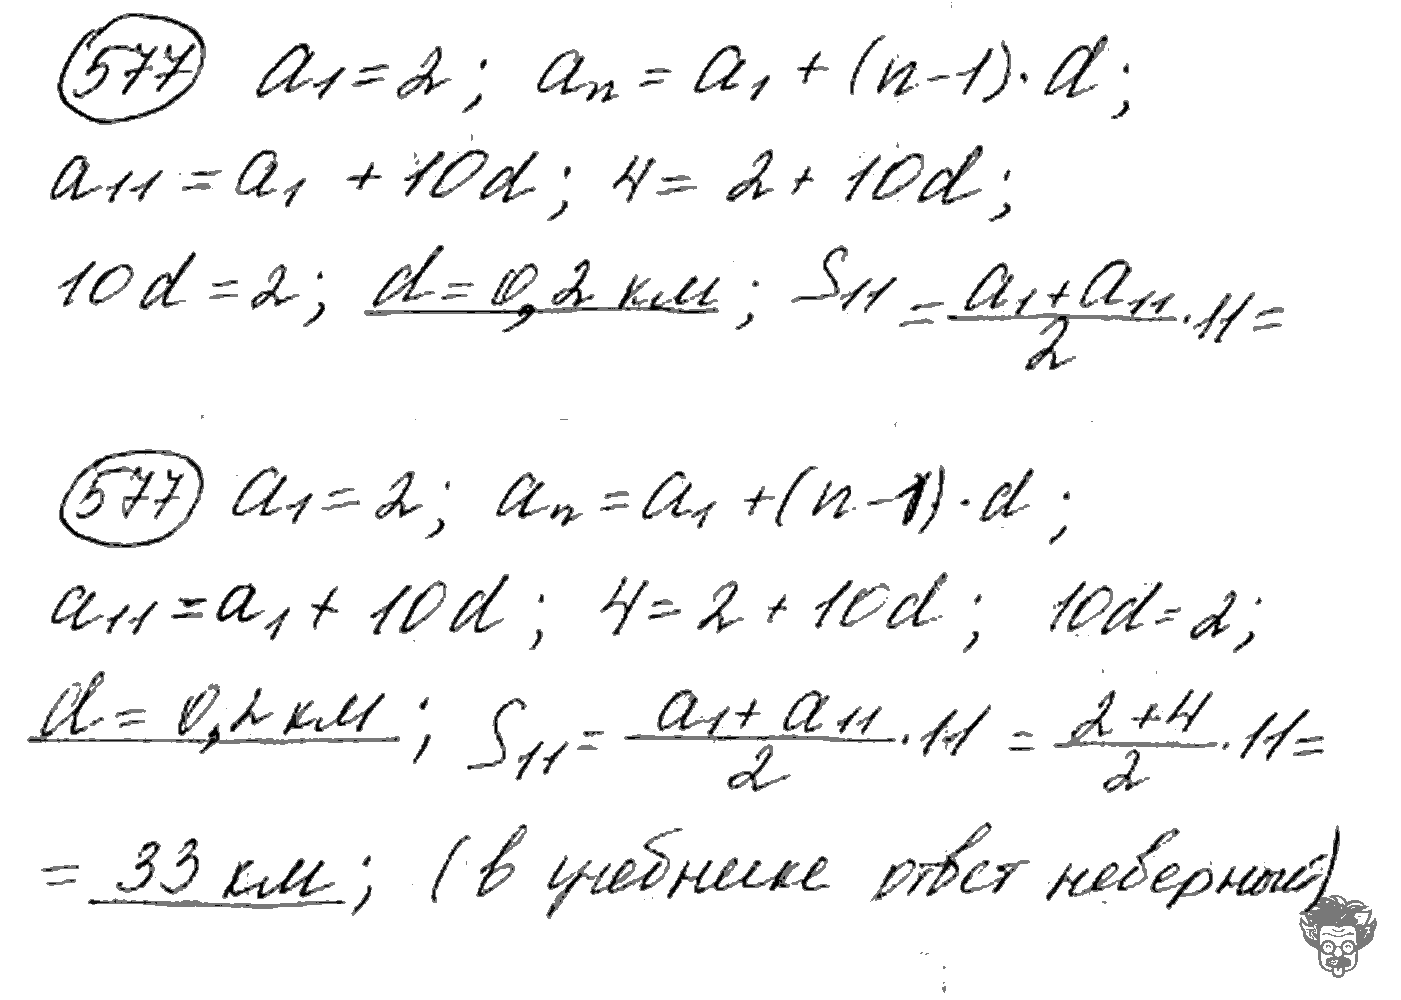 577 a₁ = 2; aₙ = a₁ + (n-1)·d;
a₁₁ = a₁ + 10d; 4 = 2 + 10d;
10d = 2; d = 0,2 км; S₁₁ = (a₁ + a₁₁)/2 · 11 =
577 a₁ = 2; aₙ = a₁ + (n-1)·d;
a₁₁ = a₁ + 10d; 4 = 2 + 10d; 10d = 2;
d = 0,2 км; S₁₁ = (a₁ + a₁₁)/2 · 11 = (2 + 4)/2 · 11 =
= 33 км; (в учебнике ответ неверный)